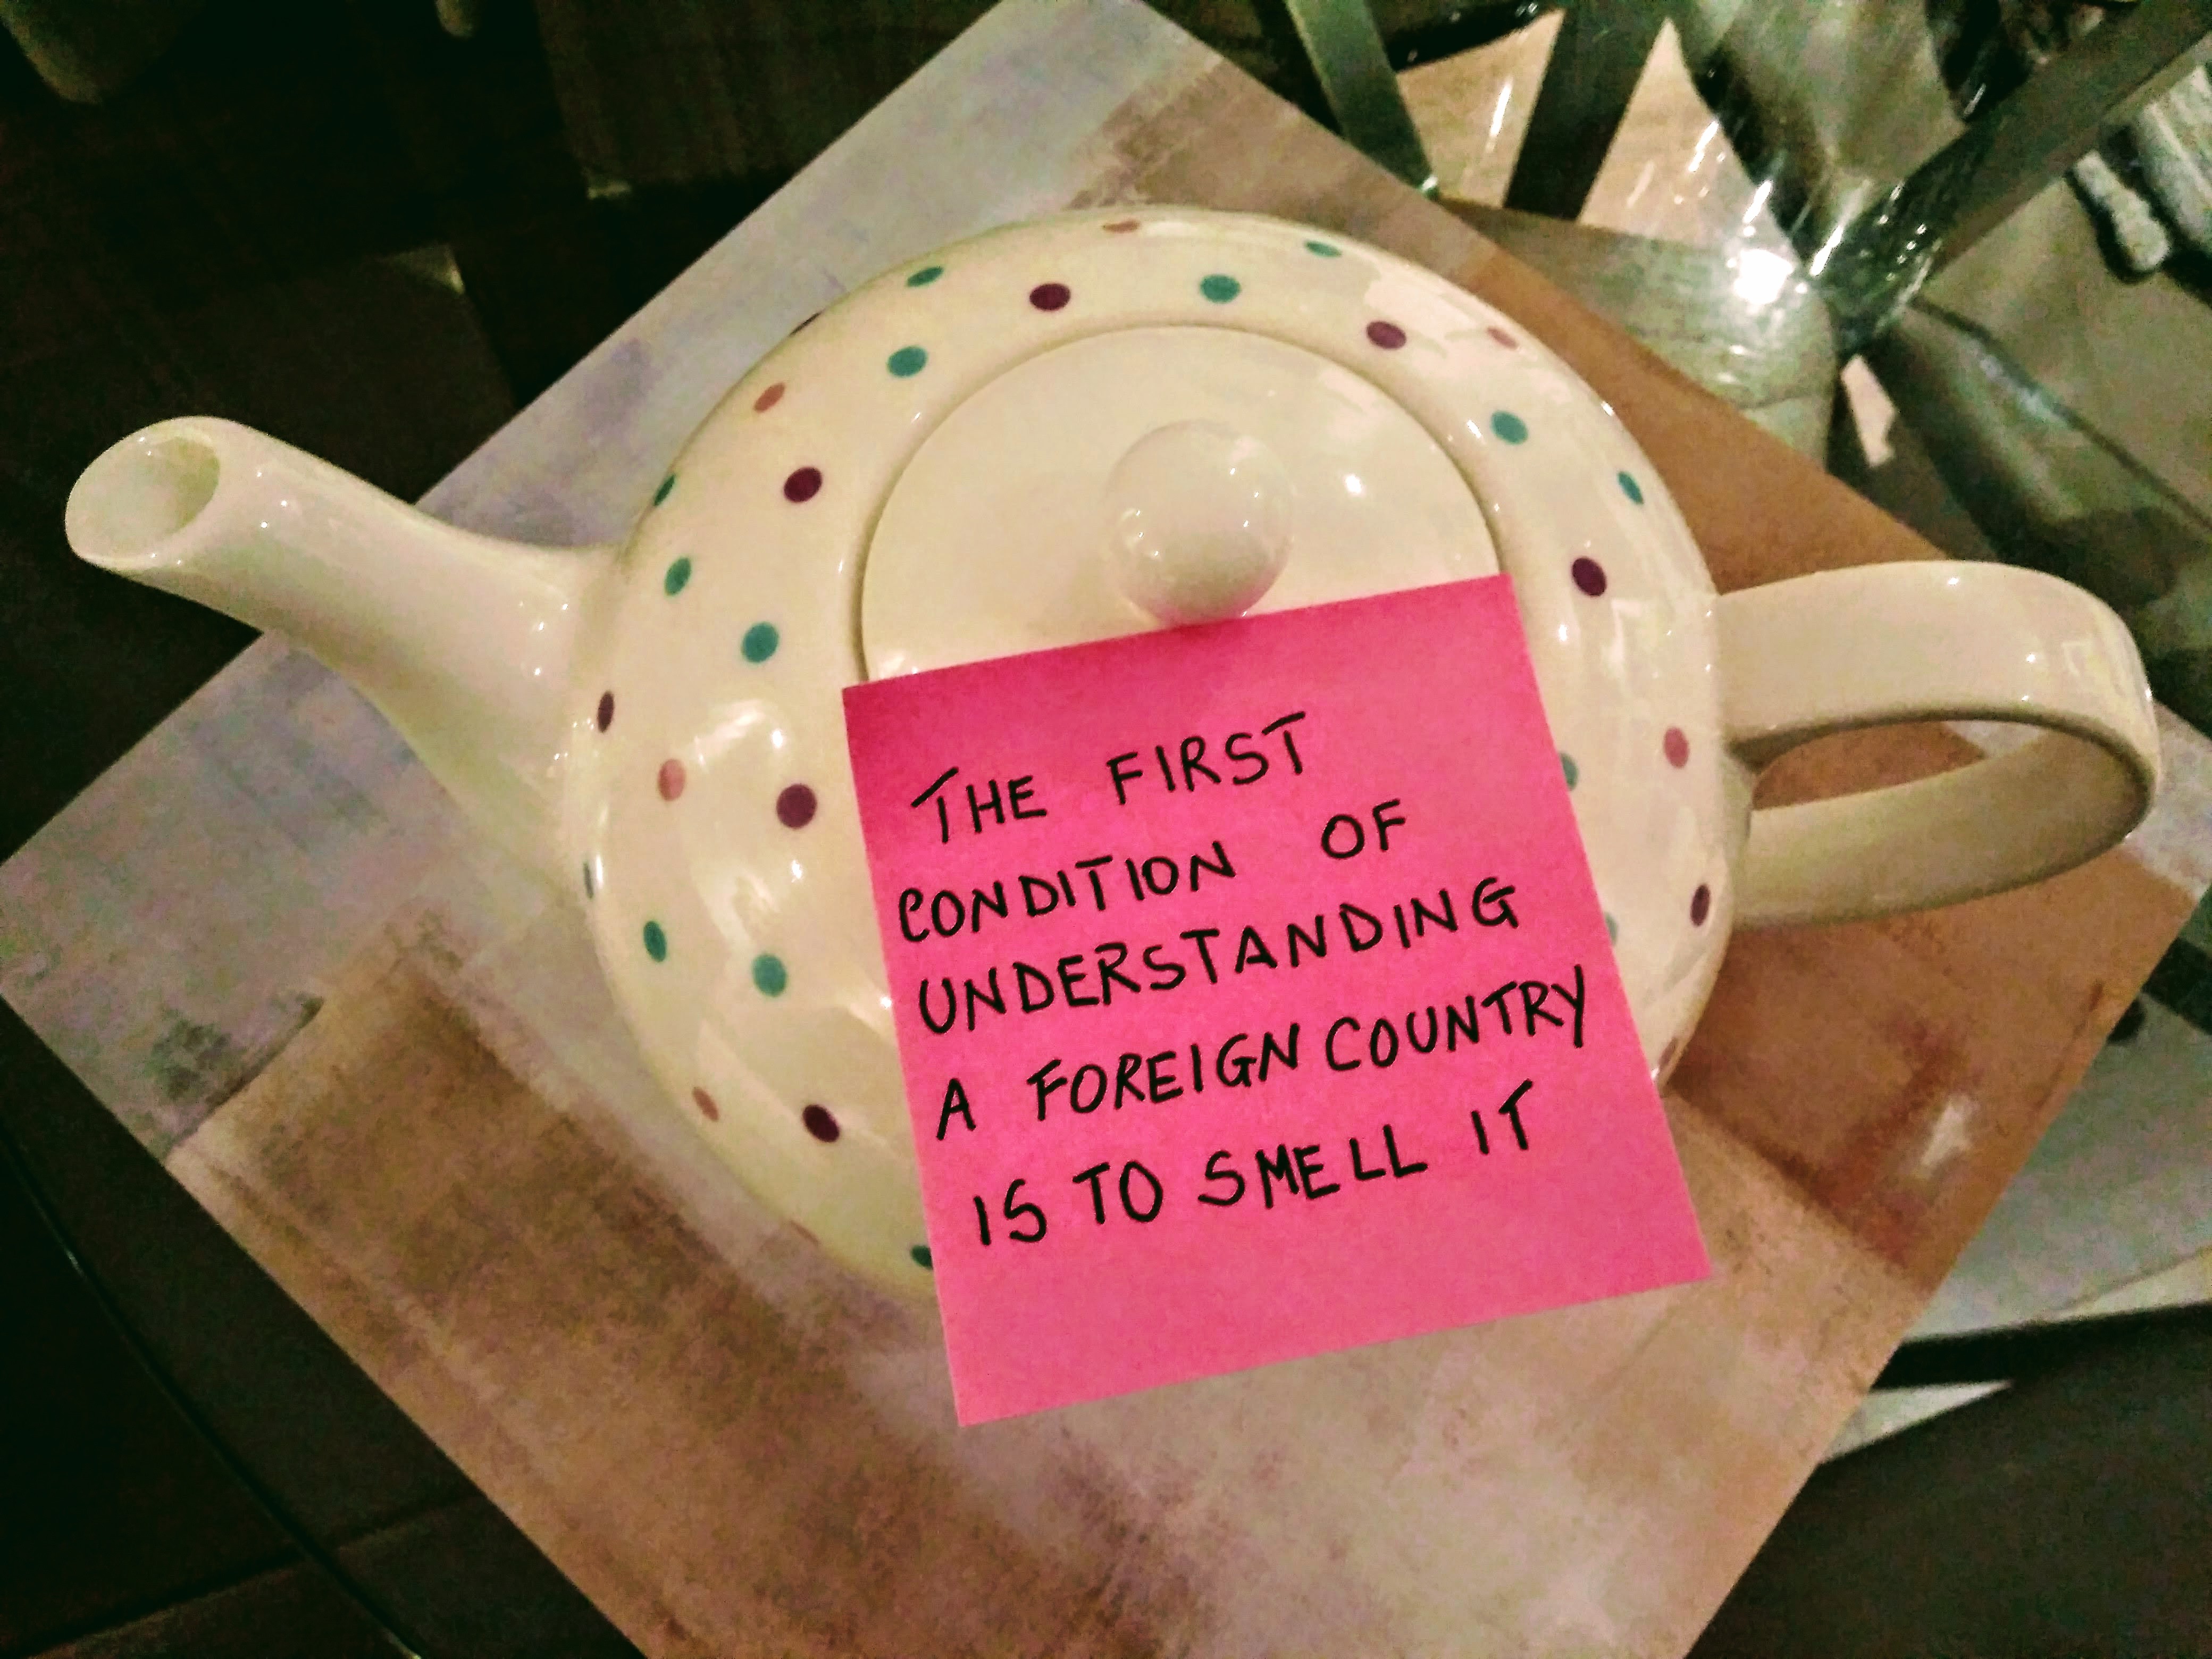 THE FIRST
CONDITION OF
UNDERSTANDING
A FOREIGN COUNTRY
IS TO SMELL IT